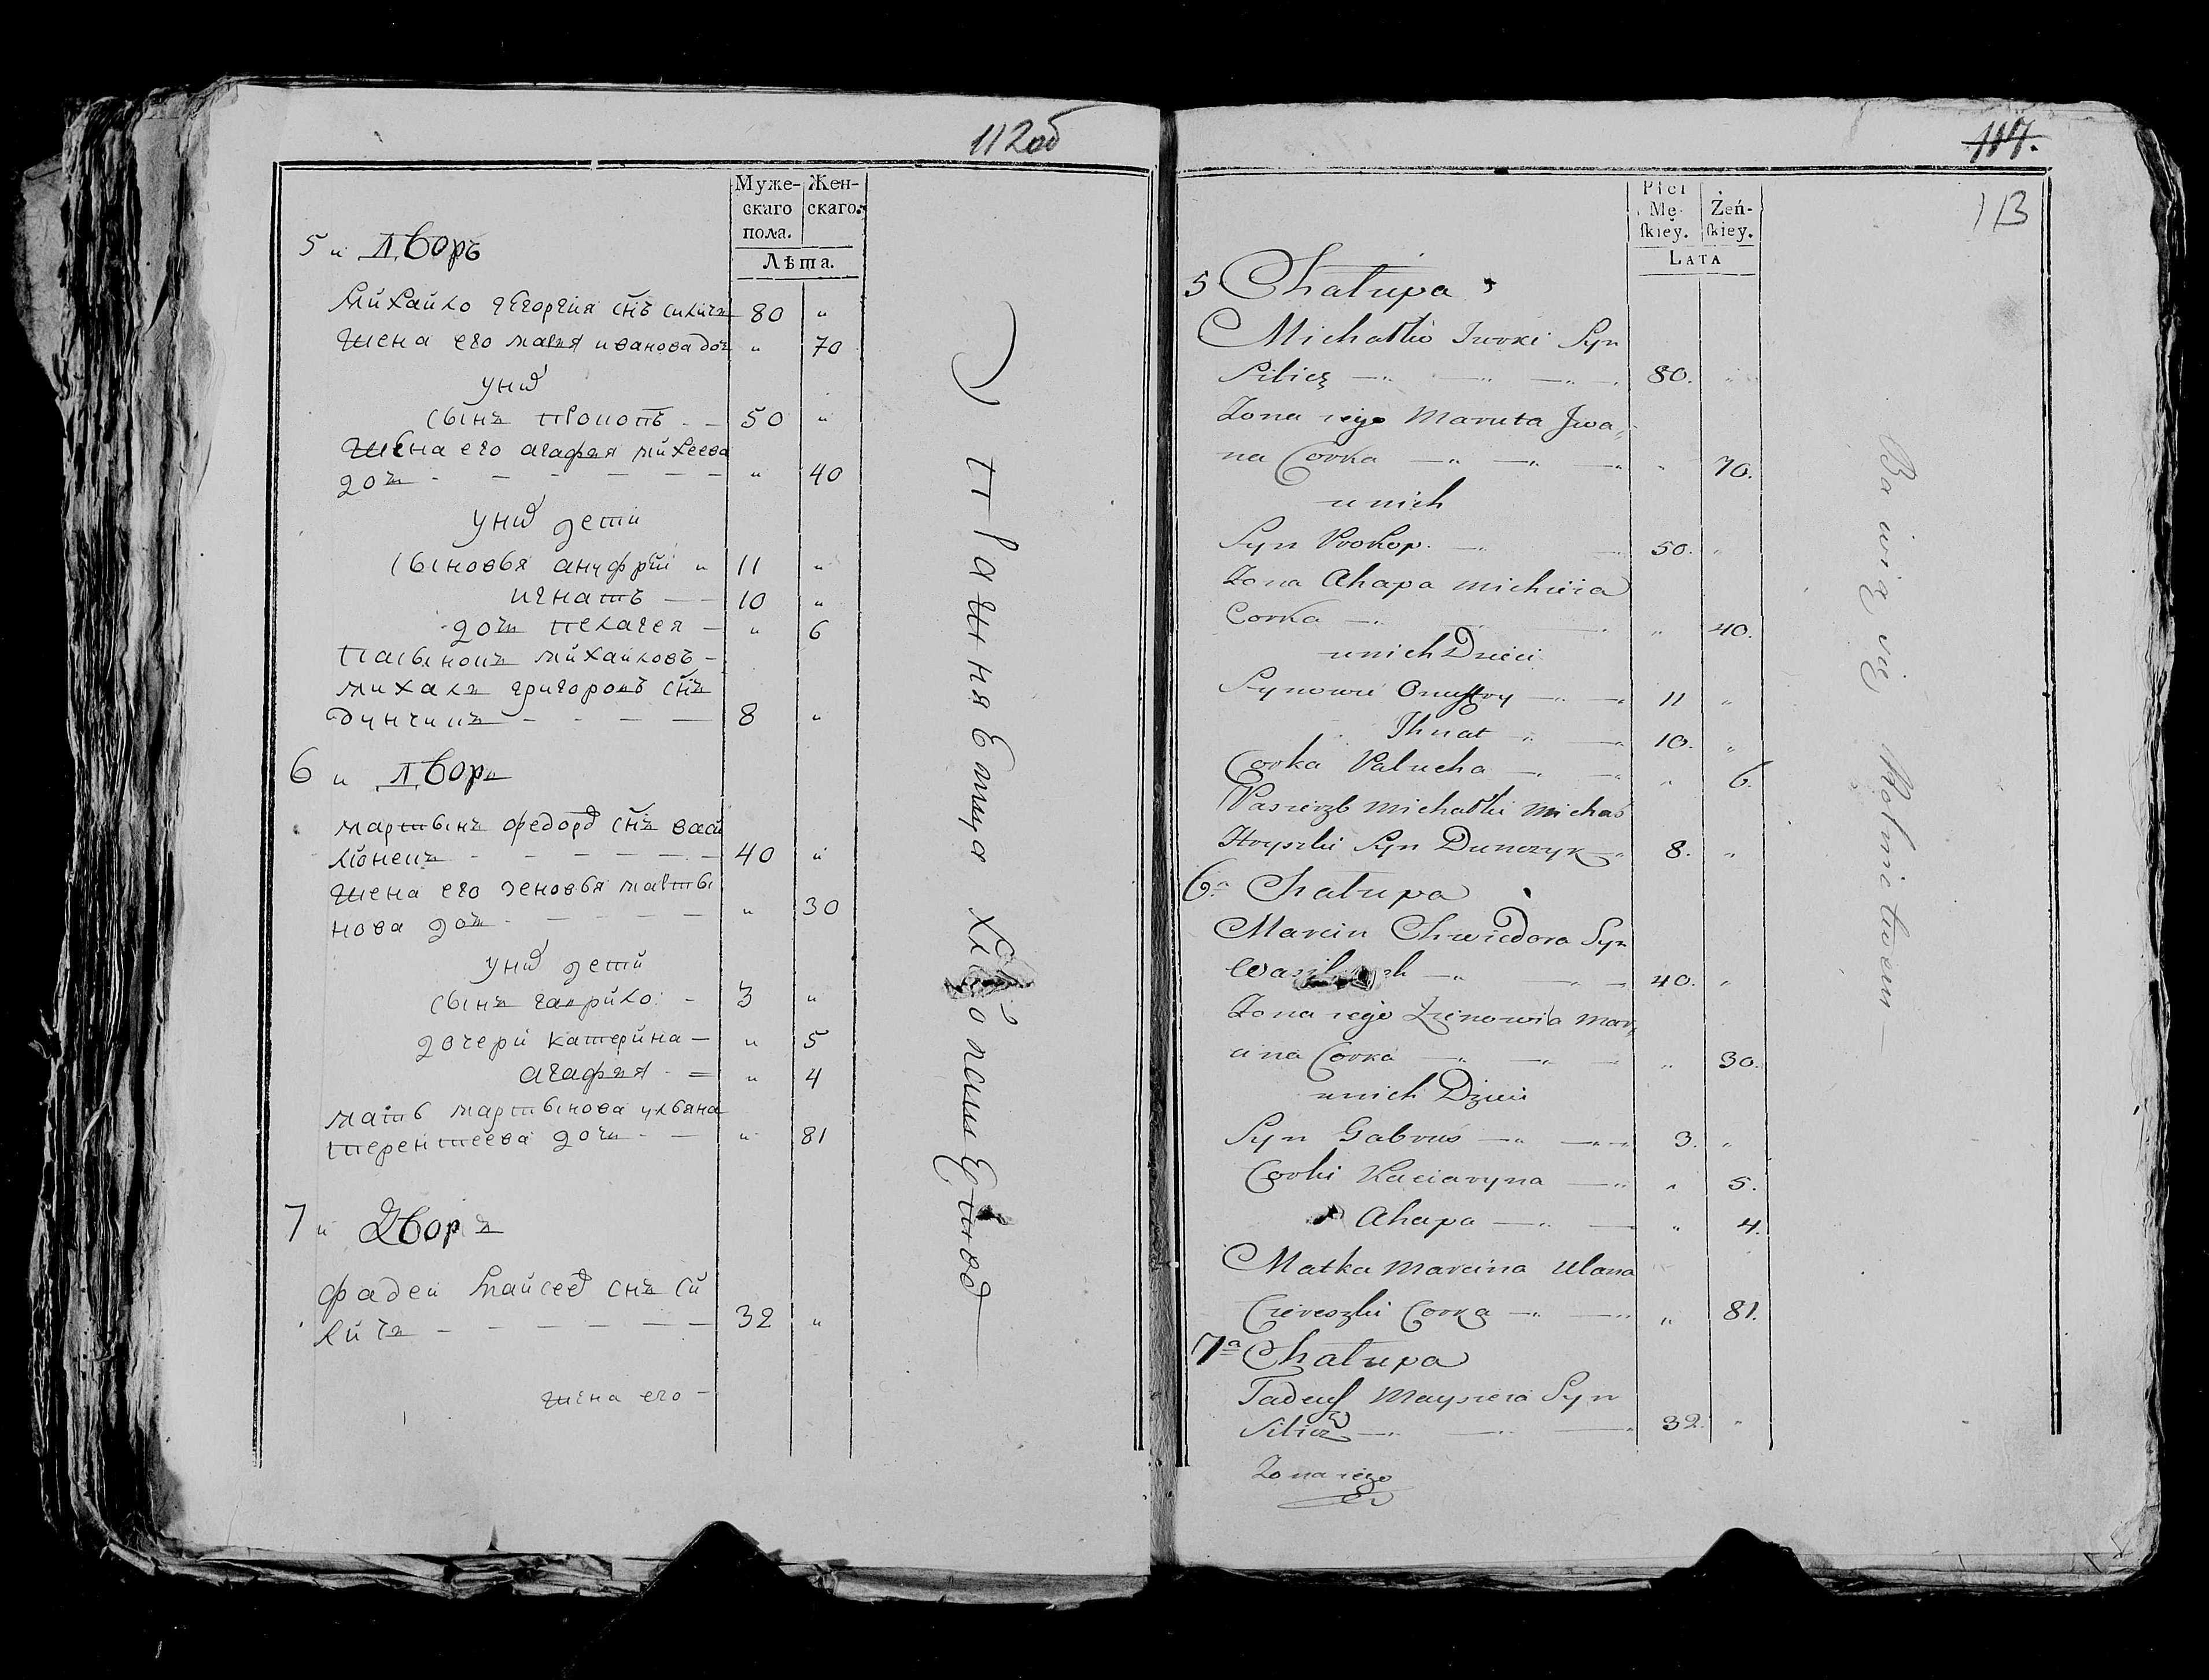 112 об
Муже-
скаго
пола.
Жен-
скаго.
Лѣта.
5 й дворъ
Михайло Георгия снъ силичъ 80 "
Жена его мария иванова доч " 70
у них
сынъ прокопъ - - 50 "
Жена его агафия михеева
дочь - - - - " 40
у них дети
сыновья ануфрий " 11 "
игнатъ — 10 "
дочь пелагея - " 6
пасынокъ михайловъ -
михала григоровъ снъ
дунчикъ - - - 8 "
6 й дворъ
мартынъ федоров снъ васи
лионецъ - - - - 40 "
Жена его зеновья марты
нова дочь - - - " 30
у них дети
сынъ гаврило - 3 "
дочери катерина — " 5
агафия - " 4
мать мартынова ульяна
терентеева дочь - — " 81
7 й Дворъ
фадей майсеев снъ си
личъ - - - - 32 "
жена его -
упражняемца хлѣбопашеством
117.
113
Płci
Mę-
skiey.
Żeń-
skiey.
LATA
5 Chałupa
Michałko Jurki Syn
Silicz — 80. "
Zona iego Maruta Jwa„
na Corka — " 70.
u nich
Syn Prokop. — 50. "
Zona Ahapa Michieia
Corka — " 40.
u nich Dzieci
Synowie Onufry — 11 "
Jhnat — 10. "
Corka Palucha — " 6.
Pasierzb Michałki Michaś
Hryszki Syn Dunczyk — 8. "
6a Chałupa
Marcin Chwiedora Syn
— 40. "
Zona iego Zienowia Mar„
cina Corka — " 30.
u nich Dzieci
Syn Gabruś — 3. "
Corki Kaciaryna — " 5.
Ahapa — " 4.
Matka Marcina Ulana
Ciereszki Corka — " 81.
7a Chałupa
Tadeusz Maysieia Syn
Silicz — 32. "
Zona iego
Bawią się Rolnictwem —